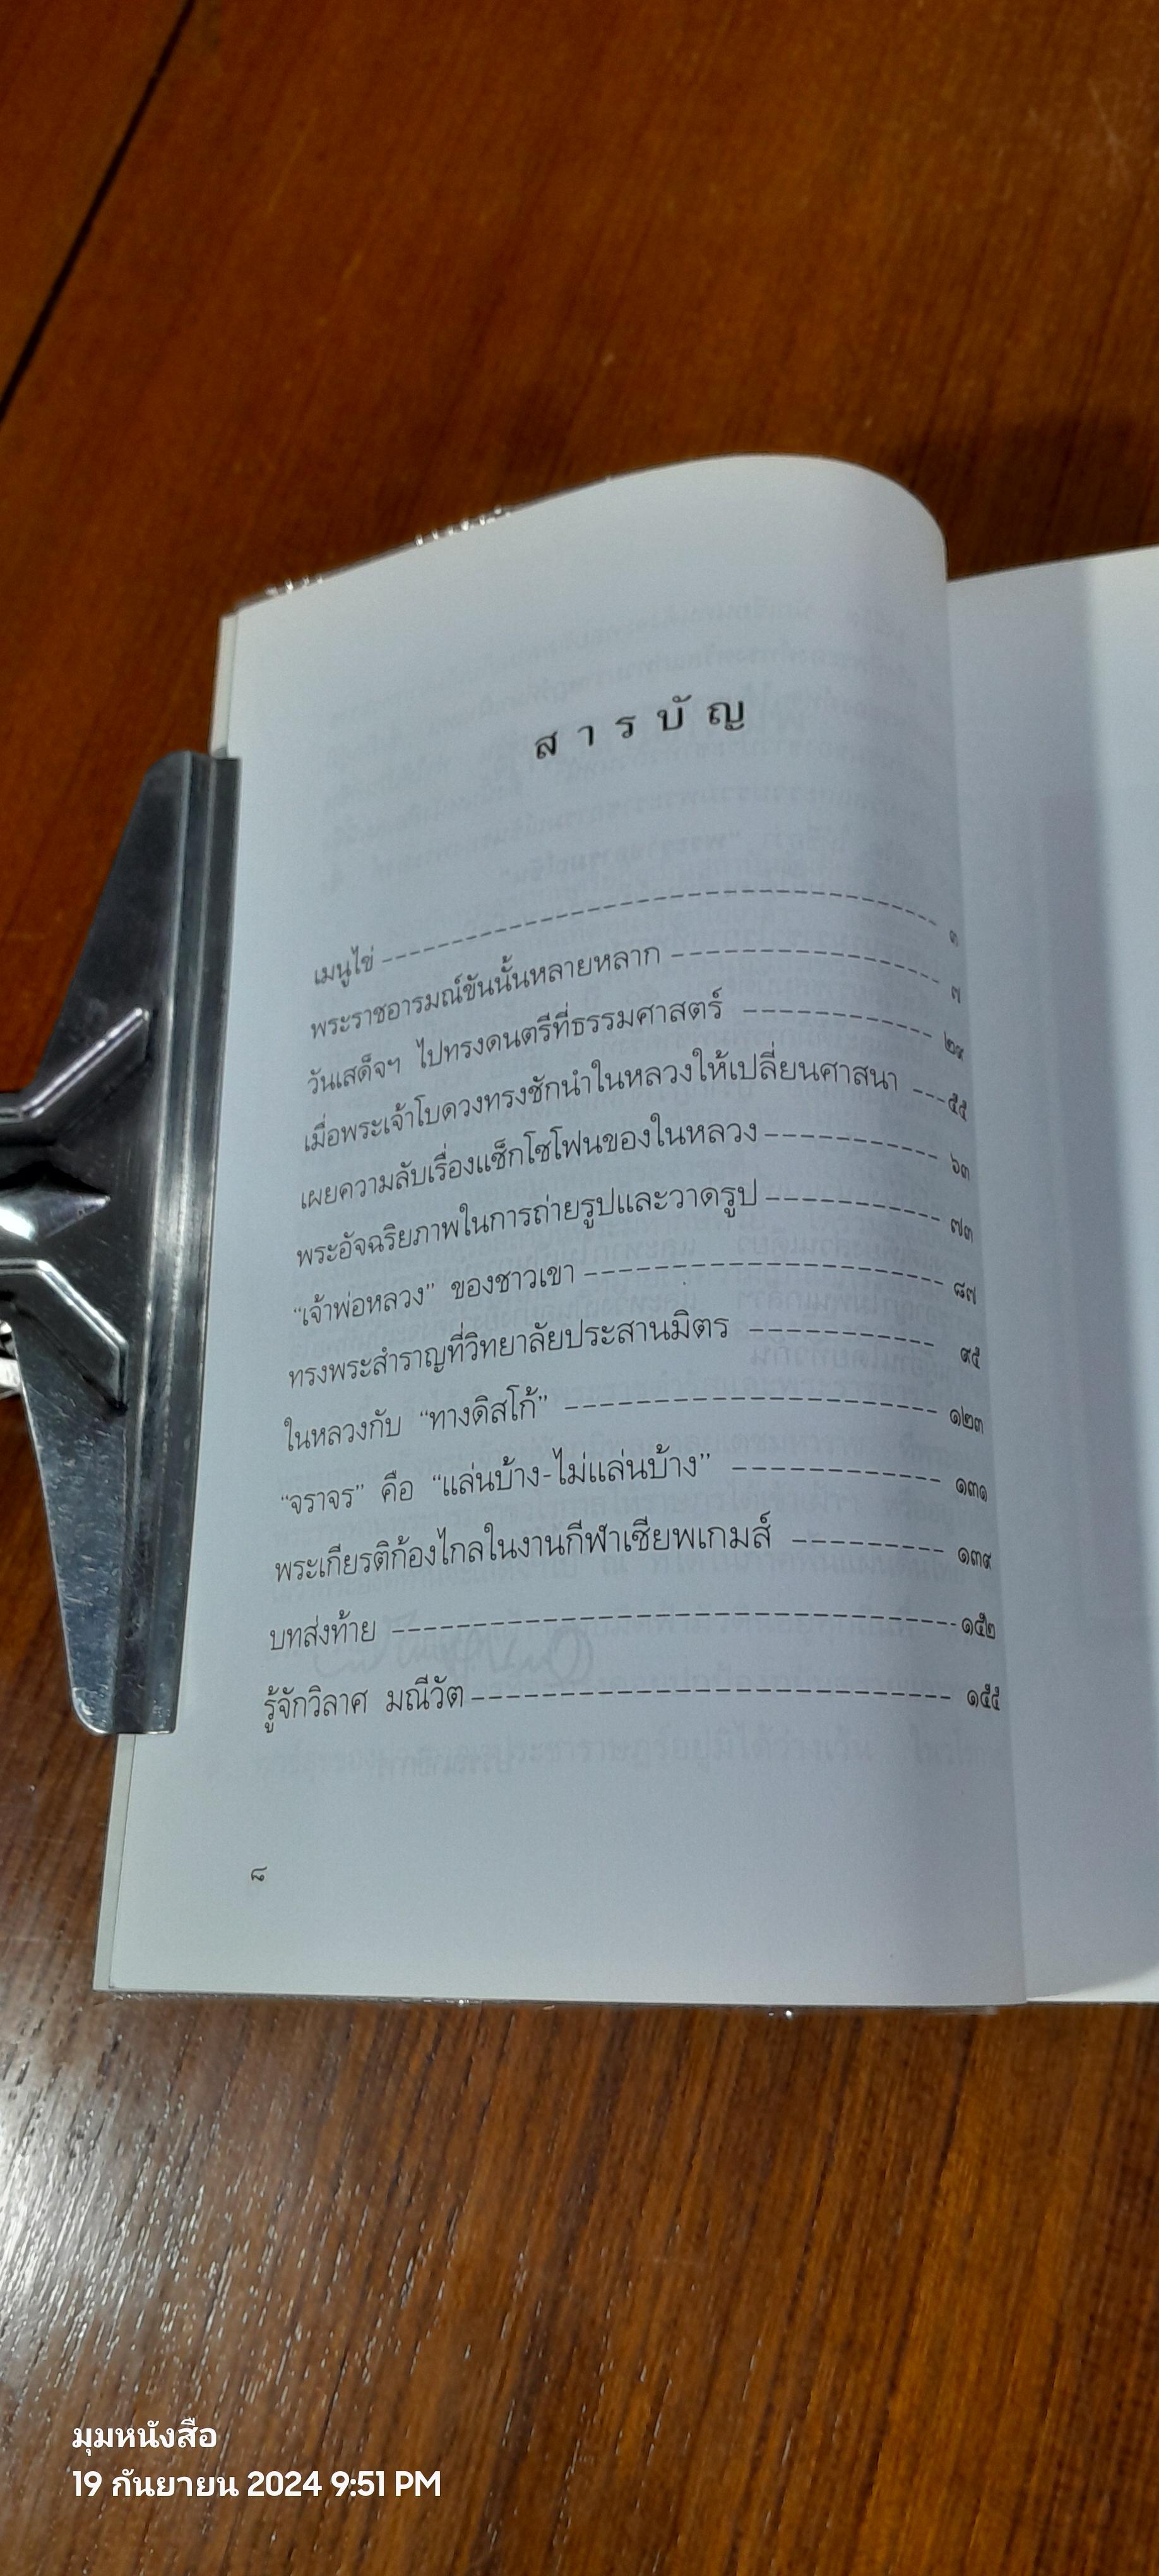 สารบัญ
เมนูไข่ ๓
พระราชอารมณ์ขันนั้นหลายหลาก ๗
วันเสด็จฯ ไปทรงดนตรีที่ธรรมศาสตร์ ๒๙
เมื่อพระเจ้าโบดวงทรงชักนำในหลวงให้เปลี่ยนศาสนา ๕๕
เผยความลับเรื่องแซ็กโซโฟนของในหลวง ๖๓
พระอัจฉริยภาพในการถ่ายรูปและวาดรูป ๗๓
“เจ้าพ่อหลวง” ของชาวเขา ๘๗
ทรงพระสำราญที่วิทยาลัยประสานมิตร ๙๕
ในหลวงกับ “ทางดิสโก้” ๑๒๓
“จราจร” คือ “แล่นบ้าง-ไม่แล่นบ้าง” ๑๓๑
พระเกียรติก้องไกลในงานกีฬาเซียพเกมส์ ๑๓๙
บทส่งท้าย ๑๕๒
รู้จักวิลาศ มณีวัต ๑๕๕
๘
มุมหนังสือ
19 กันยายน 2024 9:51 PM